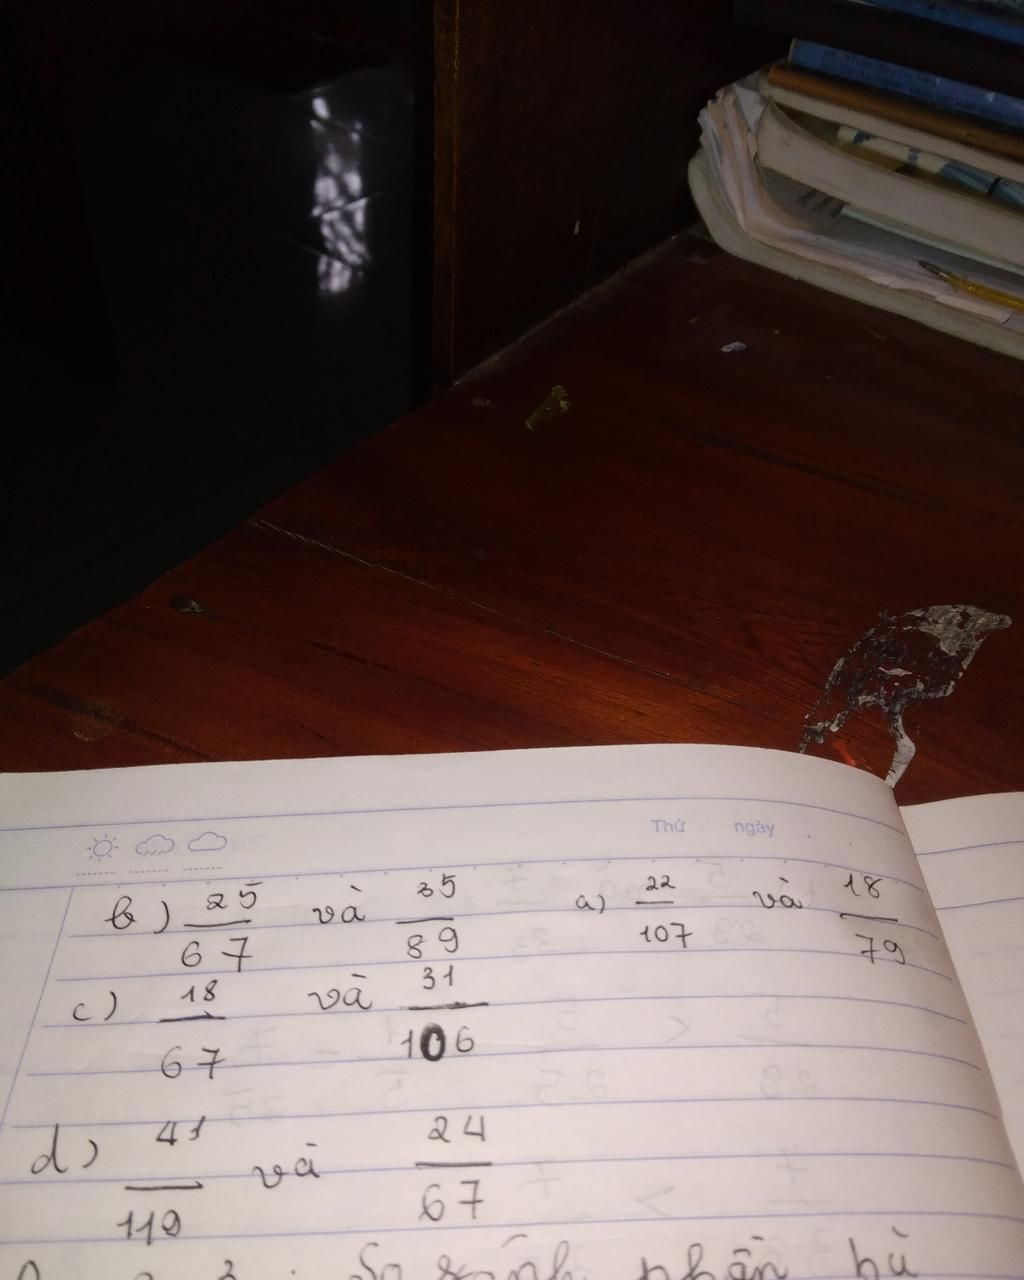 Thứ ngày
b) 25/67 và 35/89 a) 22/107 và 18/79
c) 18/67 và 31/106
d) 41/119 và 24/67
So sánh phần bù